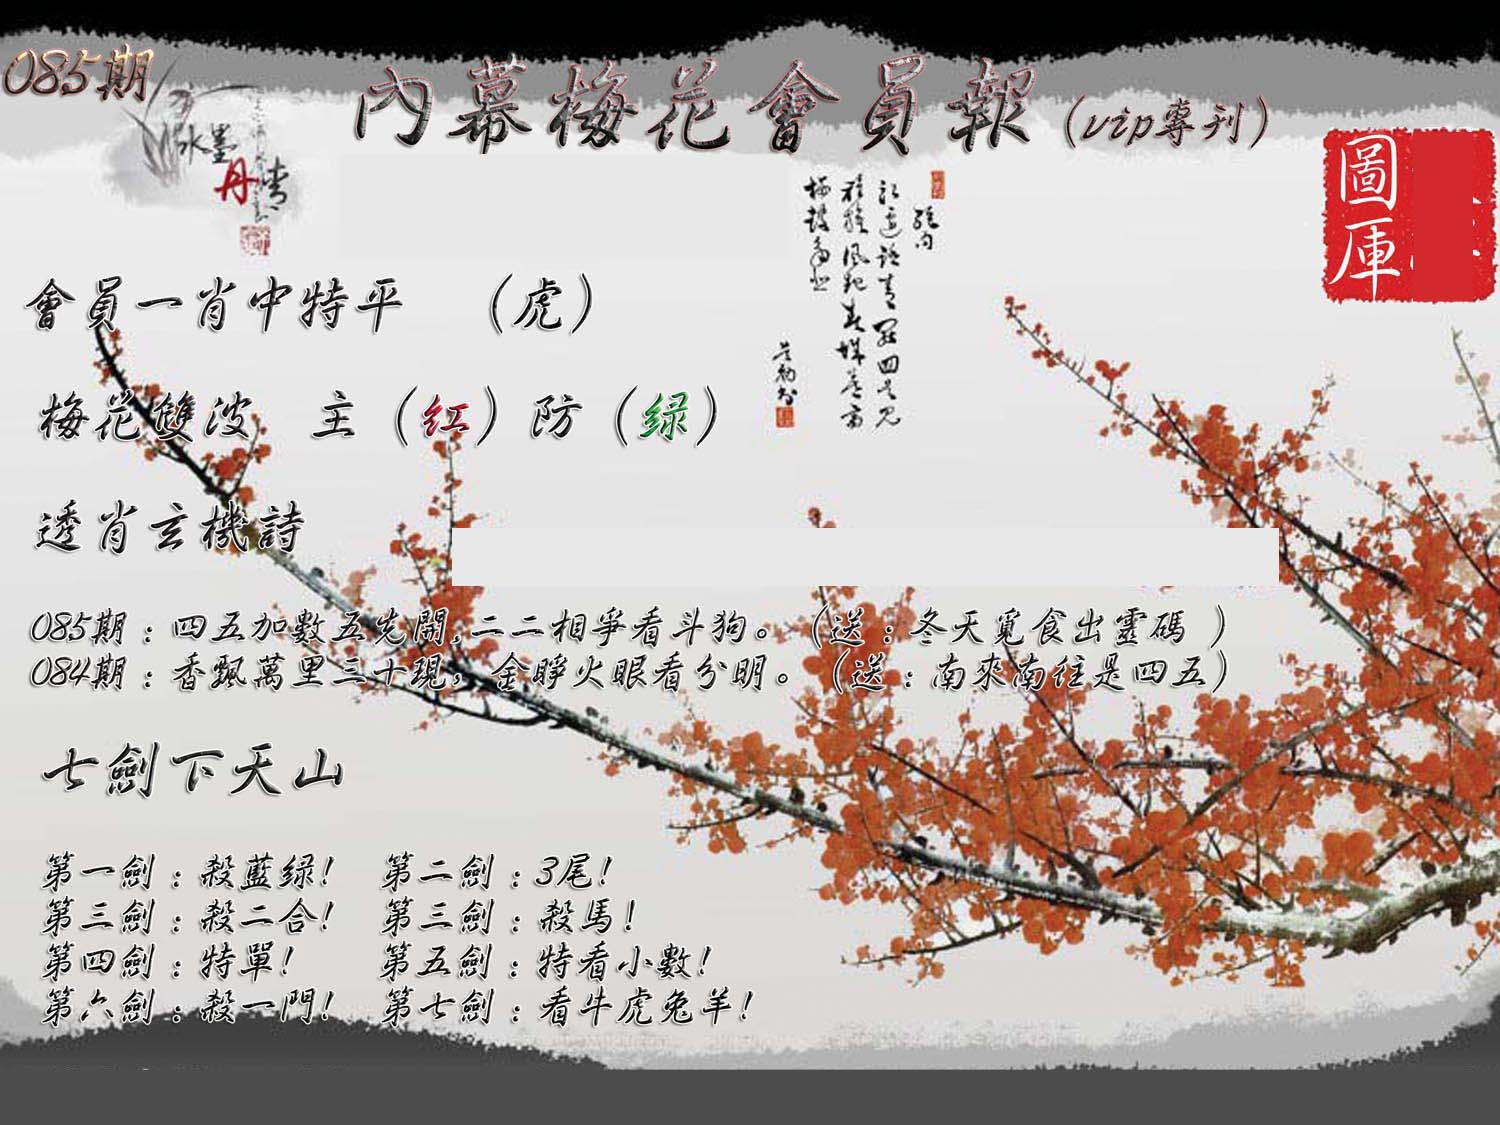 085期
內幕梅花會員報(vip專刊)
水墨
丹青
圖庫
會員一肖中特平 (虎)
梅花雙波 主(红)防(绿)
透肖玄機詩
085期:四五加數五先開,二二相爭看斗狗。(送:冬天覓食出靈碼 )
084期:香飄萬里三十現,金睜火眼看分明。(送:南來南往是四五)
七劍下天山
第一劍:殺藍绿! 第二劍:3尾!
第三劍:殺二合! 第三劍:殺馬!
第四劍:特單! 第五劍:特看小數!
第六劍:殺一門! 第七劍:看牛虎兔羊!